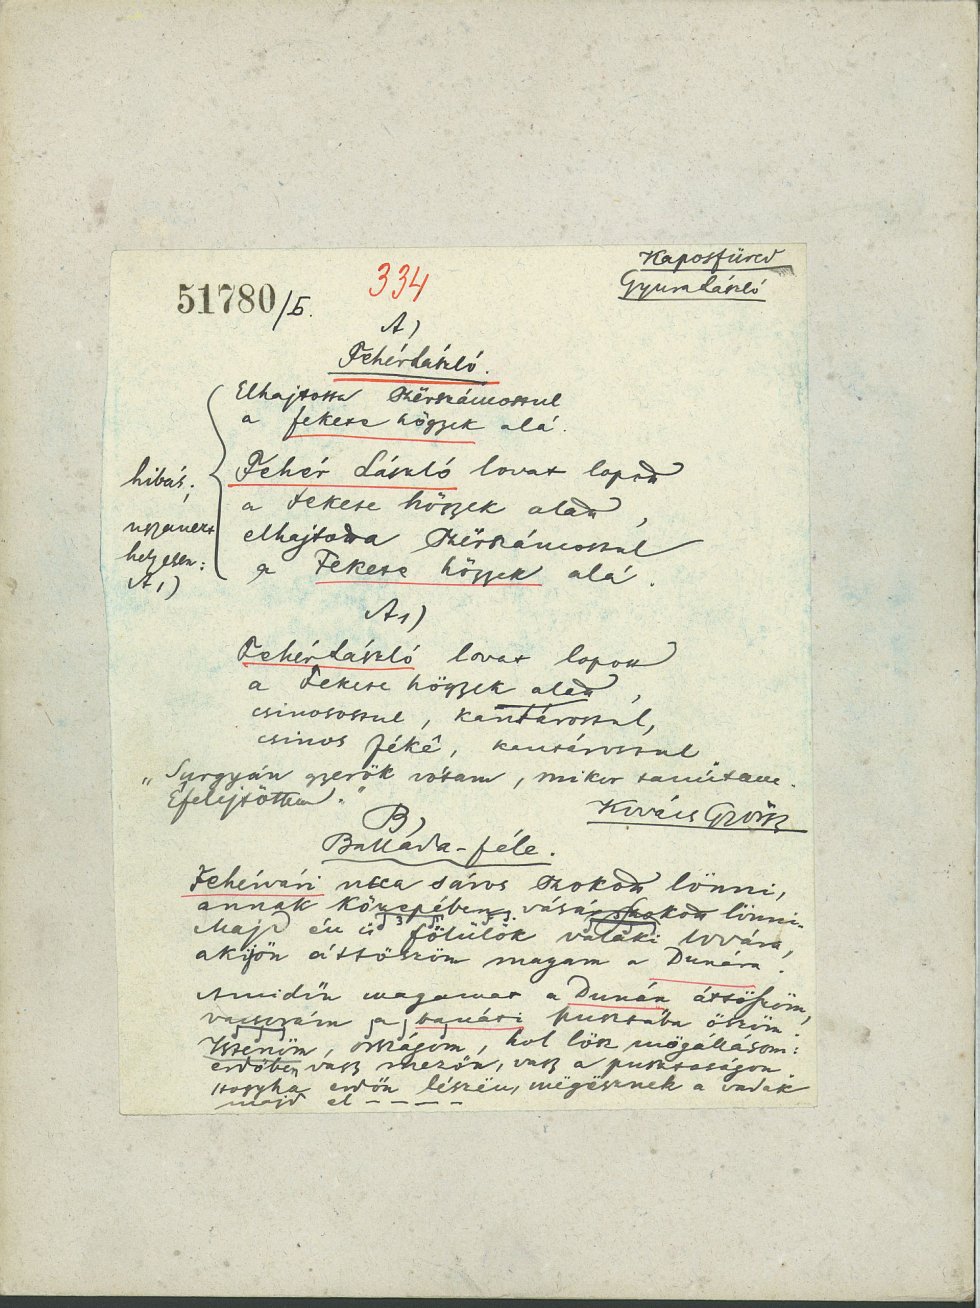 Kaposfüred
Gyura László
334
51780/5.
A)
Fehér László.
Elhajtotta szërszámostul
a fekete högyek alá.
hibás;
ugyanez
helyesen:
A1)
Fehér László lovat lopott
a Fekete högyek alatt,
elhajtotta szërszámostul
a Fekete högyek alá.
A1)
Fehér László lovat lopott
a Fekete högyek alatt,
csinosostul, kantárostul,
csinos fékê, kantárostul
„Surgyán gyerök vótam, mikor tanútam.
Efelejtöttem."
Kovács György
B)
Ballada-féle.
Fehérvári ucca sáros szokott lönni,
annak közepében vásár szokott lönni.
Majd én is fölülök valaki lovára,
akijön áttöszöm magam a Dunára.
Amidőn magamat a Dunán áttöszöm,
a banáti pusztába öszöm.
Istenöm, országom, hol lösz mögállásom:
erdőben vagy mezőn, vagy a pusztaságon.
Hogyha erdőn lészën, mëgësznek a vadak
majd el - - - - -